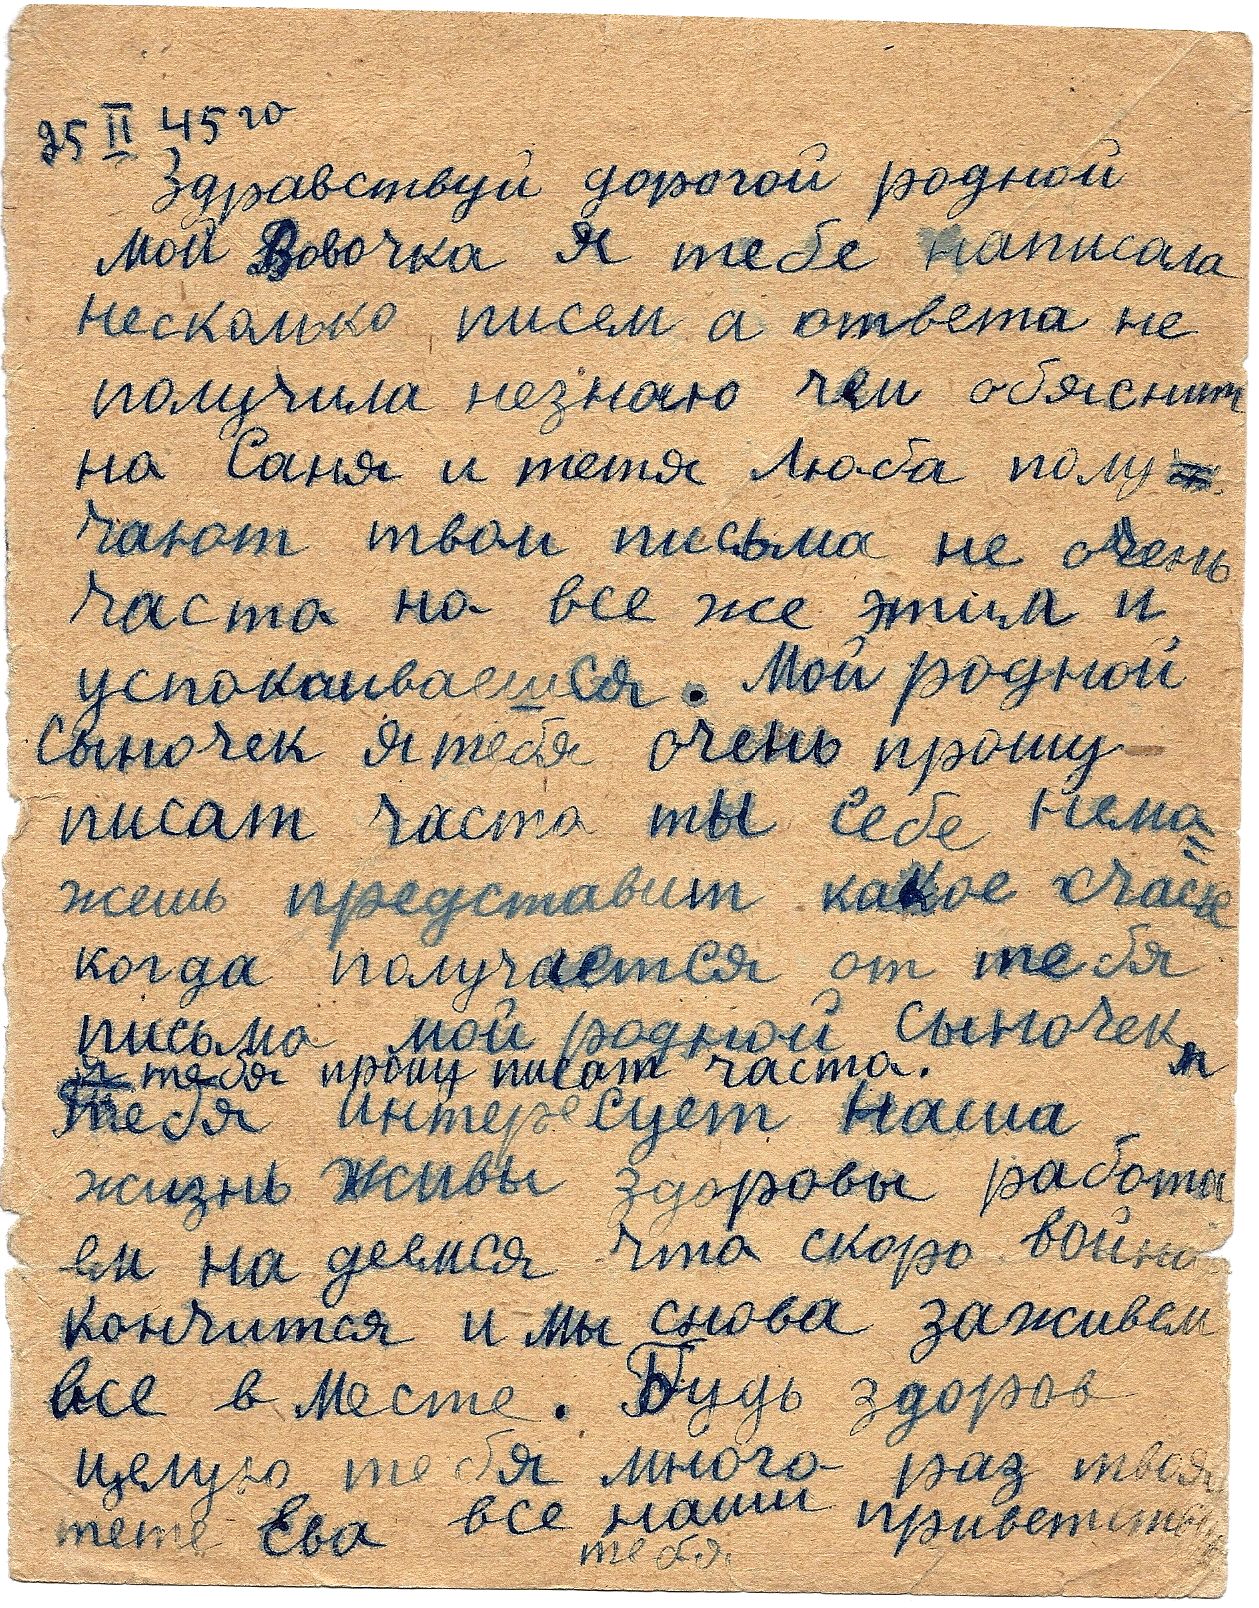 25 II 45 го
Здравствуй дорогой родной
мой Вовочка Я тебе написала
несколько писем а ответа не
получила незнаю чем обяснит
на Саня и тетя Люба полу
чают твои письма не очень
часта на все же этим и
успокаиваешся. Мой родной
Сыночек я тебя очень прошу
писат часта ты себе немо=
жешь представит какое счасте
когда получается от тебя
письмо мой родной сыночек
я тебя прошу писат часта.
тебя интересует наша
жизнь живы здоровы работа
ем на деемся что скоро война
кончится и мы снова заживем
все в месте. Будь здоров
целую тебя много раз твоя
тете Ева все наши приветству
тебя